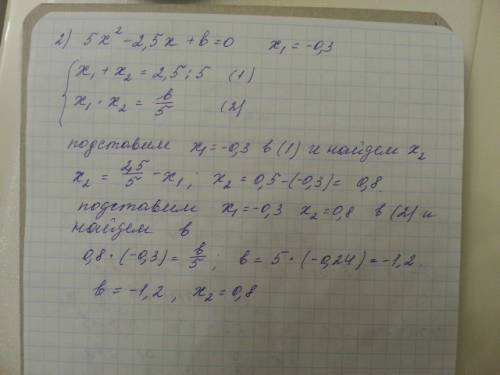 2) 5x² - 2,5x + в = 0 x₁ = -0,3
x₁ + x₂ = 2,5 : 5 (1)
x₁ · x₂ = в/5 (2)
подставим x₁ = -0,3 в (1) и найдем x₂
x₂ = 2,5/5 - x₁; x₂ = 0,5 - (-0,3) = 0,8.
подставим x₁ = -0,3 x₂ = 0,8 в (2) и
найдем в
0,8 · (-0,3) = в/5; в = 5 · (-0,24) = -1,2.
в = -1,2, x₂ = 0,8